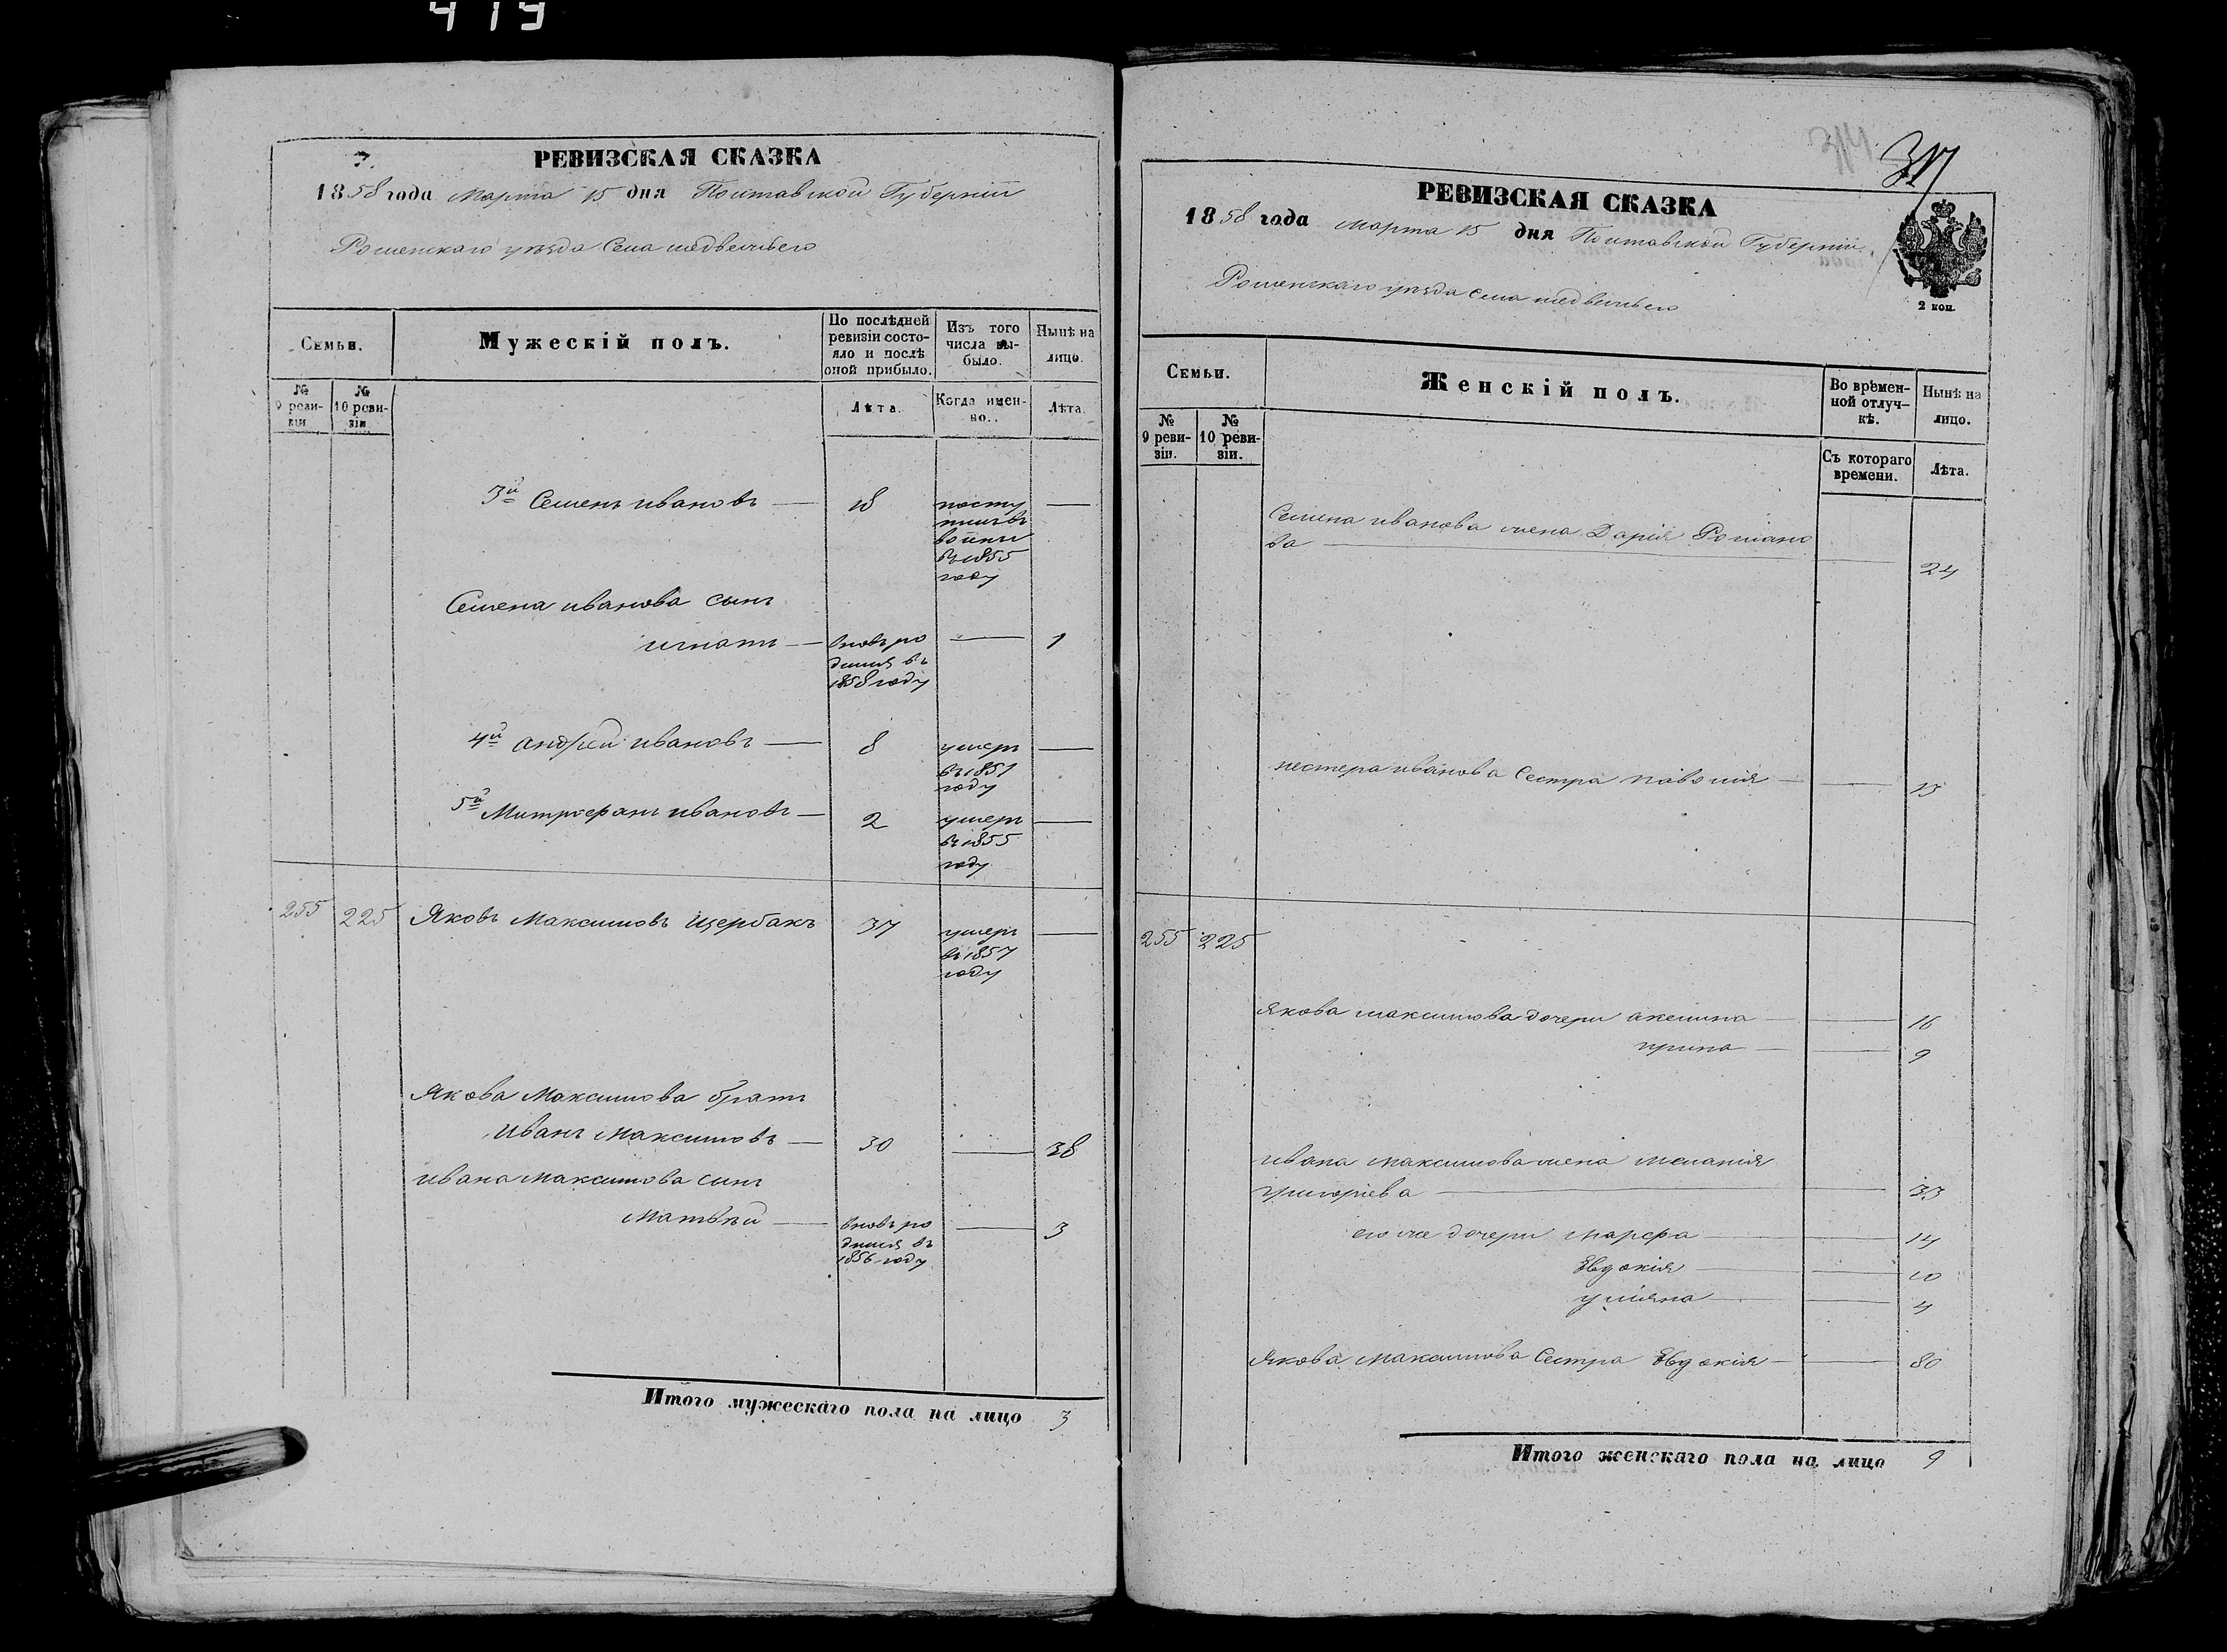 419
РЕВИЗСКАЯ СКАЗКА
1858 года Марта 15 дня Полтавской Губерніи
Роменскаго уезда Села медвежьего
Семьи.
Мужескій полъ.
По послѣдней ревизіи состо-
яло и послѣ
оной прибыло.
Изъ того
числа вы-
было.
Нынѣ на
лицо.
№
9 реви-
зіи
№
10 реви-
зіи
Лѣта.
Когда имен-
но.
Лѣта.
3й Семенъ ивановъ — 18 —
посту
в
войны
въ 1855
году
Семена иванова сынъ
игнатъ — вновь ро — 1
дился въ
1858 году
4й андрей ивановъ — 8 умеръ —
въ 1851
году
5й Митрофанъ ивановъ — 2 умеръ —
въ 1855
году
255 225 Яковъ Максимовъ Щербакъ 37 умеръ —
въ 1857
году
Якова Максимова братъ
Иванъ Максимовъ — 30 — 38
ивана Максимова сынъ
Матвѣй — вновь ро — 3
дился въ
1856 году
Итого мужескаго пола на лицо 3
317
РЕВИЗСКАЯ СКАЗКА
1858 года марта 15 дня Полтавской Губерніи
Роменскаго уезда села медвежьего
2 коп.
Семьи.
Женскій полъ.
Во времен-
ной отлуч-
кѣ.
Нынѣ на
лицо.
№
9 реви-
зіи.
№
10 реви-
зіи.
Съ котораго
времени.
Лѣта.
Семена иванова жена Дарія Романо
ва — — 24
нестера иванова Сестра павлія — — 15
255 225
Якова максимова дочери акелина — — 16
ирина — — 9
ивана максимова жена меланія
григоріева — — 33
его же дочери марфа — — 14
Евдокія — — 10
уліяна — — 4
Якова максимова Сестра Евдокія — — 80
Итого женскаго пола на лицо 9